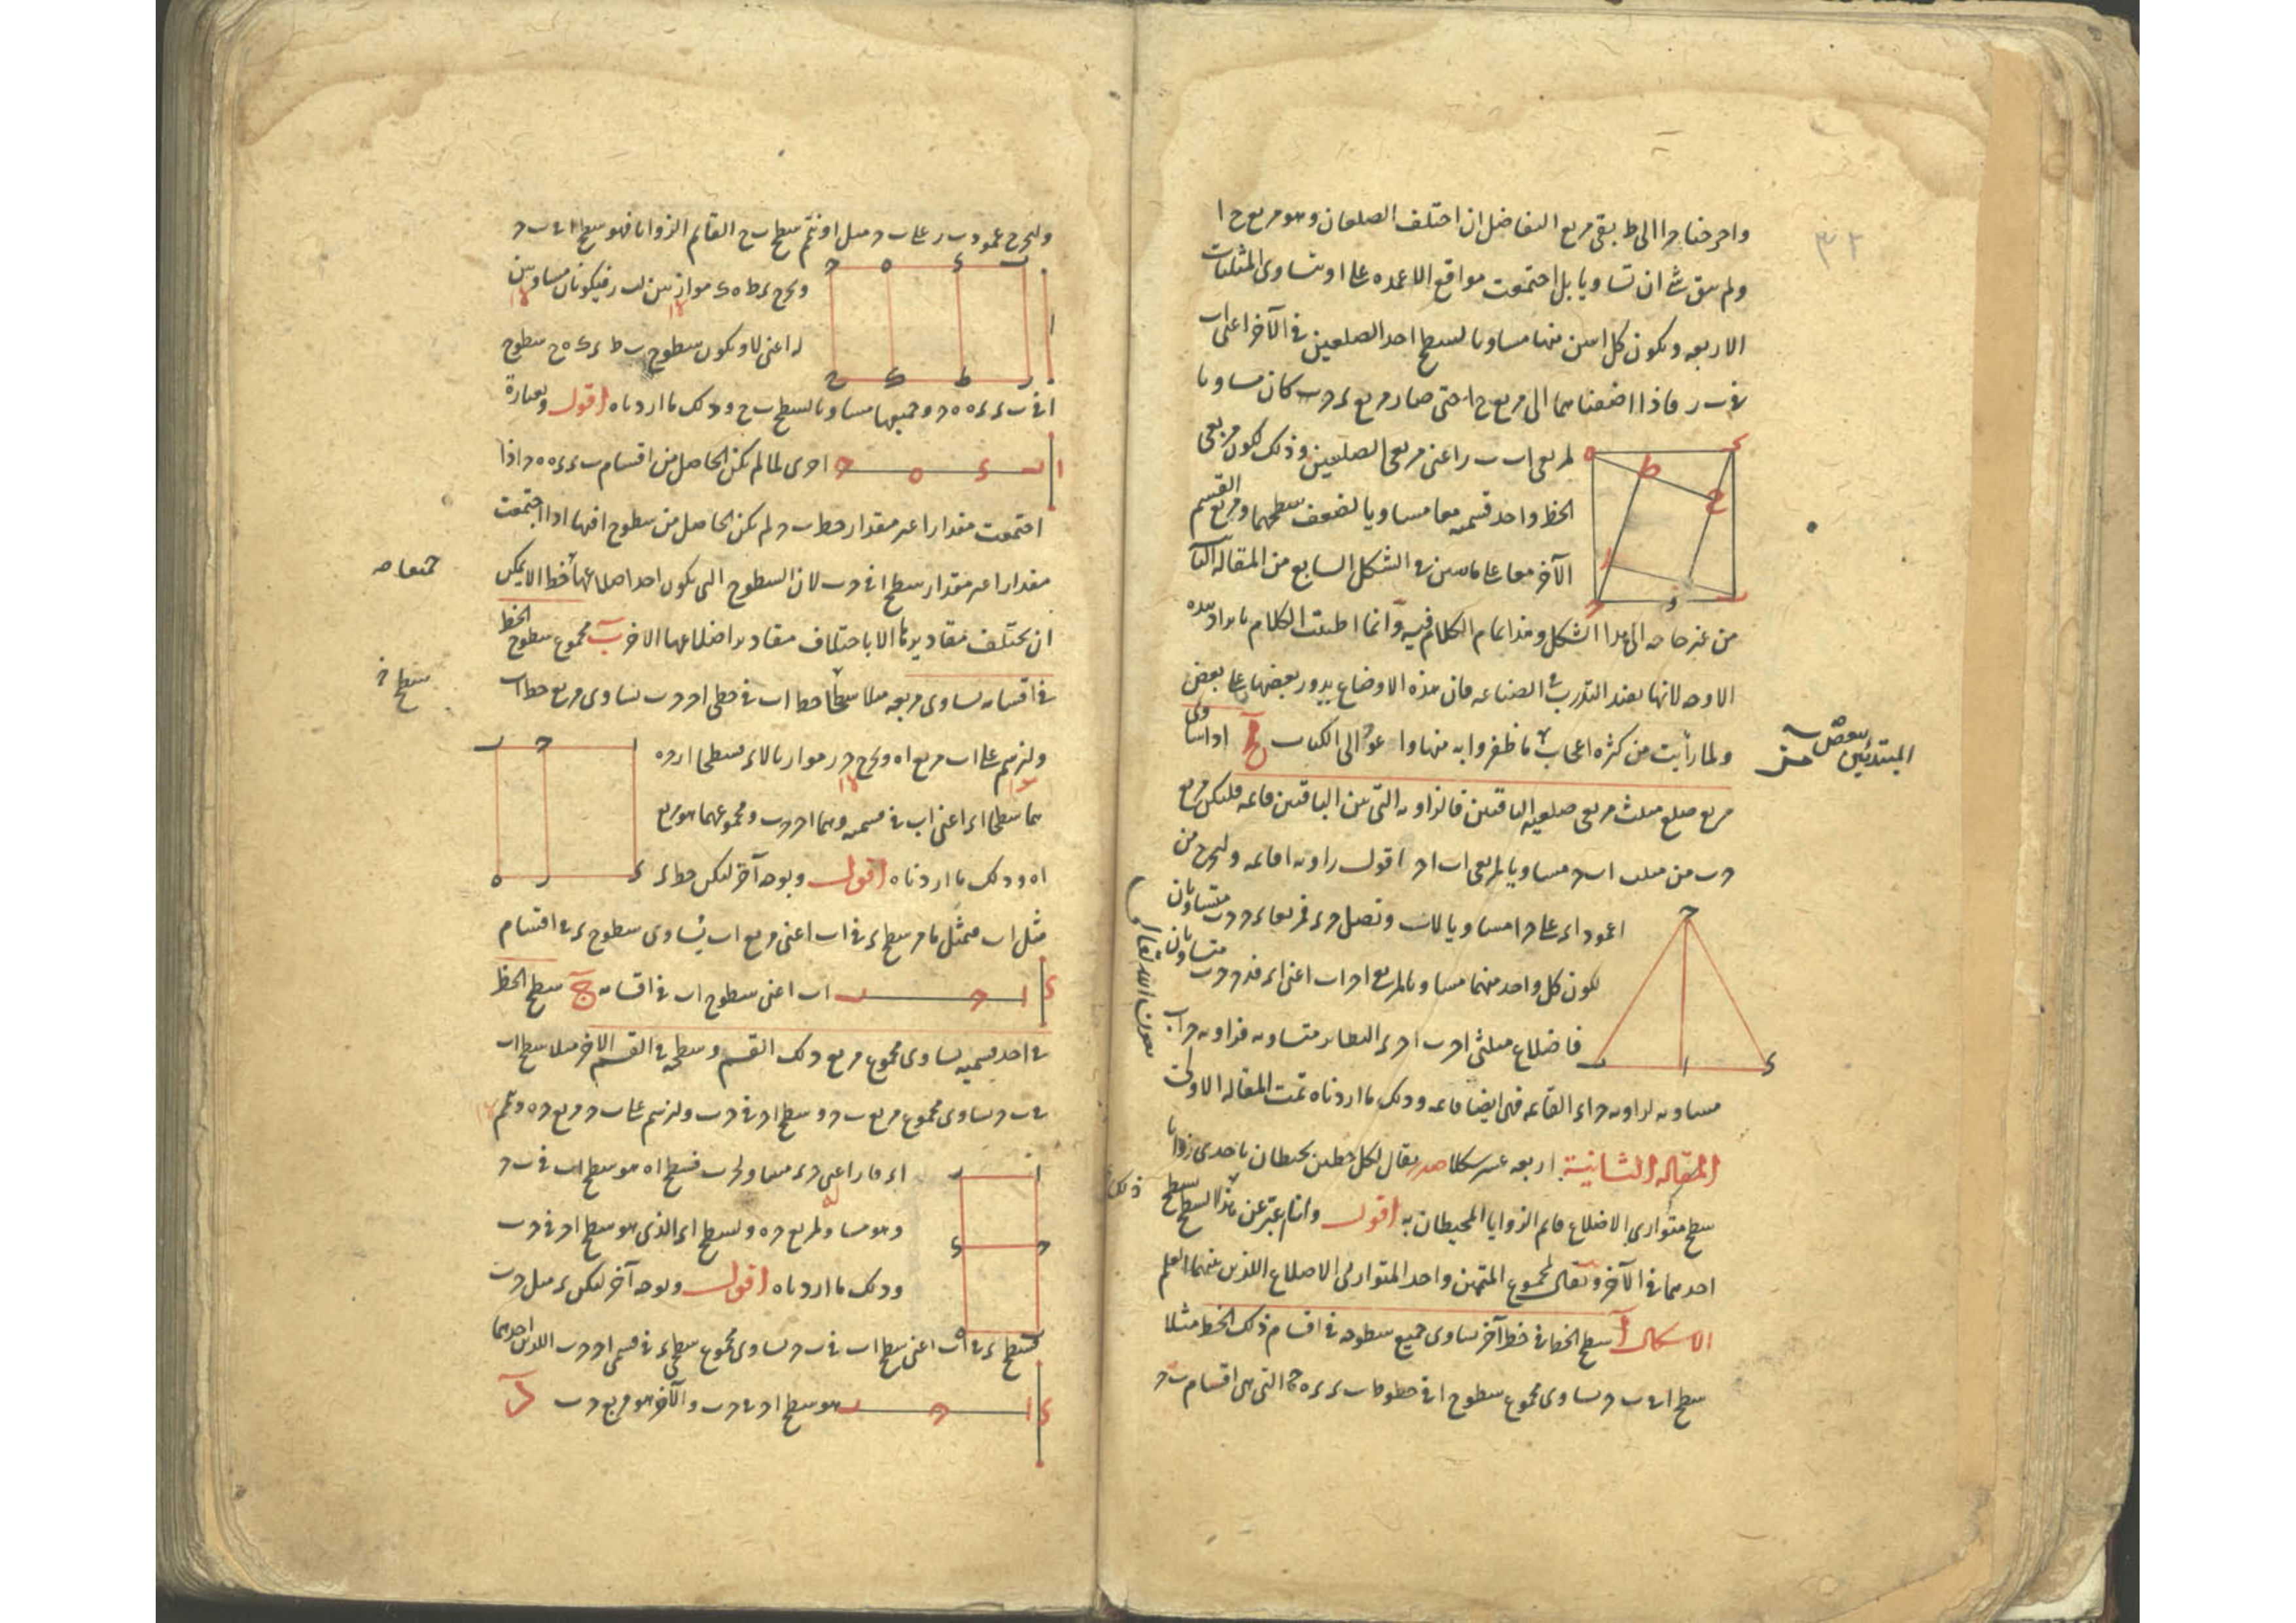 واخرجنا حا الى ط بقى مربع التفاضل ان اختلف الضلعان وهو مربع ح ا
ولم يبق شئ ان تساويا بل اجتمعت مواقع الاعمدة على ا وتساوى المثلثات
الاربعه ويكون كل اثنين منها مساويا لسطح احد الضلعين فى الآخر اعنى اب
فى ب ر فاذا اضفناهما الى مربع ح ا حتى صار مربع ء ح ب كان مساويا
لمربعى اب ب ر اعنى مربعى الضلعين وذلك لكون مربعى
الخط واحد قسميه معا مساويا لضعف سطحهما ومربع القسم
الآخر معا على ما تبين فى الشكل السابع من المقاله الثا
من غير حاجه الى هذا الشكل وهذا تمام الكلام فيه وانما اطنبت الكلام بايراد هذه
الاوجه لانها تفيد التدرب فى الصناعه فان هذه الاوضاع يدور بعضها على بعض
ولما رأيت من كثرة اعجاب ما ظفروا به منها و عود الى الكتاب مح اذا ساوى
بعض المبتدئين
مربع ضلع مثلث مربعى ضلعيه الباقيين فالزاويه التى بين الباقيين قائمه فليكن مربع
ح ب من مثلث اب ح مساويا لمربعى اب اح اقول زاويه ا قائمه ولنخرج من
ا عمود اء على ح ا مساويا لاب ونصل ح ء فمربعا ء ح ح ب متساويان
لكون كل واحد منهما مساويا لمربع اح اب اعنى اء فء ح ح ب متساويان
فاضلاع مثلثى اح ب اح ء النظاير متساويه فزاويه ح اب
مساويه لزاويه ح اء القائمه فهى ايضا قائمه وذلك ما اردناه تمت المقاله الاولى
بعون الله تعالى
المقاله الثانية اربعه عشر شكلا صدر يقال لكل خطين يحيطان باحدى زوايا
سطح متوازى الاضلاع قايم الزوايا المحيطان به اقول وانا اعبر عن هذا السطح بسطح
ذلك
احدهما فى الآخر ويقال لمجموع المتممين واحد المتوازى الاضلاع اللذين بينهما العلم
الاشكال ا سطح الخط فى خط آخر يساوى جميع سطوحه فى اقسام ذلك الخط مثلا
سطح ا فى ب ح يساوى مجموع سطوح ا فى خطوط ب ء ء ه ه ح التى هى اقسام ب ح
ولنخرج عمود ب ر على ب ح مثل ا ونتم سطح ب ح القايم الزوايا فهو سطح ا فى ب ح
ونخرج ء ط ه ك موازيين لب ر فيكونان مساويين
له اعنى لا ويكون سطوح ب ط ء ك ه ح سطوح
ا فى ب ء ء ه ه ح وجميعها مساويا لسطح ب ح وذلك ما اردناه اقول وبعبارة
اخرى لما لم يكن الحاصل من اقسام ب ء ء ه ه ح اذا
اجتمعت مقدارا غير مقدار خط ب ح لم يكن الحاصل من سطوح ا فيها اذا اجتمعت
مقدارا غير مقدار سطح ا فى ح ب لان السطوح التى يكون احد اضلاعها خط ا لا يمكن
ان يختلف مقاديرها الا باختلاف مقادير اضلاعها الاخر ب مجموع سطوح الخط
فى اقسامه يساوى مربعه مثلا سطحا خط اب فى خطى اح ح ب يساوى مربع خط اب
ولنرسم على اب مربع اه ونخرج ح ر موازيا لاء فسطحا ار ح ه
هما سطحا اء اعنى اب فى قسميه وهما اح ح ب ومجموعهما هو مربع
اه وذلك ما اردناه اقول وبوجه آخر ليكن خط ء
مثل اب فمثل ما مر سطح ء فى اب اعنى مربع اب يساوى سطوح ء فى اقسام
اب اعنى سطوح اب فى اقسامه ج سطح الخط
فى احد قسميه يساوى مجموع مربع ذلك القسم وسطحه فى القسم الآخر مثلا سطح اب
فى ب ح يساوى مجموع مربع ب ح وسطح اح فى ح ب ولنرسم على ب ح مربع ح ه ونتم
اء فار اعنى ح ء مساو لح ب فسطح اه هو سطح اب فى ب ح
وهو مساو لمربع ح ه ولسطح اء الذى هو سطح اح فى ح ب
وذلك ما اردناه اقول وبوجه آخر ليكن ء مثل ح ب
فسطح ء فى اب اعنى سطح اب فى ب ح يساوى مجموع سطحى ء فى قسمى اح ح ب اللذين احدهما
هو سطح اح فى ح ب والآخر هو مربع ح ب د